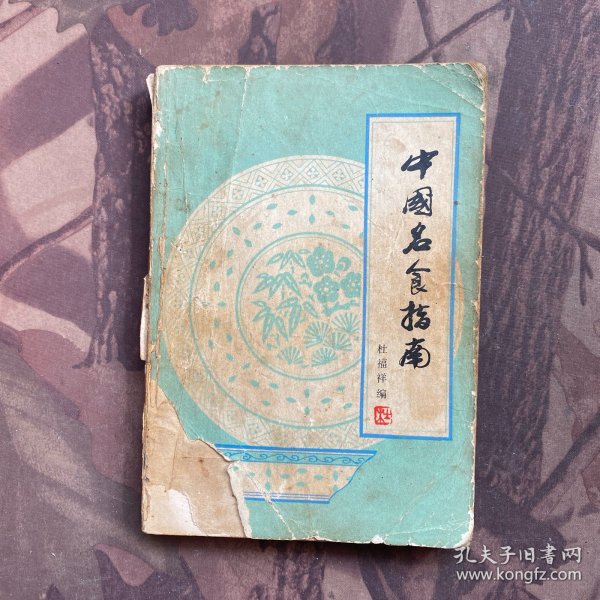 中國名食指南
杜福祥编
孔夫子旧書网
www.kongfz.com